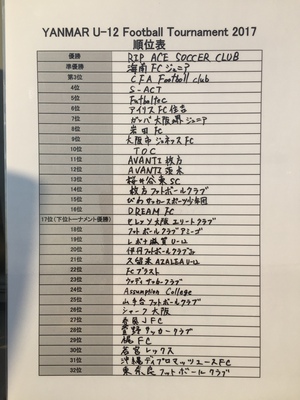 YANMAR U-12 Football Tournament 2017
順位表
優勝 RIP ACE SOCCER CLUB
準優勝 海南FCジュニア
第3位 CFA Football club
4位 S-ACT
5位 Futboltec
6位 アイリスFC住吉
7位 ガンバ大阪堺ジュニア
8位 岩田FC
9位 大阪市ジュネッスFC
10位 TOC
11位 AVANTI枚方
12位 AVANTI茨木
13位 桜井谷東SC
14位 枚方フットボールクラブ
15位 びわサッカースポーツ少年団
16位 DREAM FC
17位(下位トーナメント優勝) セレッソ大阪エリートクラブ
18位 フットボールクラブアミーゴ
19位 レボナ滋賀U-12
20位 伊丹フットボールクラブJr
21位 久留米AZALEA U-12
22位 FCブラスト
23位 ウッディサッカークラブ
24位 Assumption College
25位 山手台フットボールクラブ
26位 シャーク大阪
27位 JFC
28位 菅野サッカークラブ
29位 梶FC
30位 若宮レックス
31位 沖縄ディプロマッツユースFC
32位 東奈良フットボールクラブ